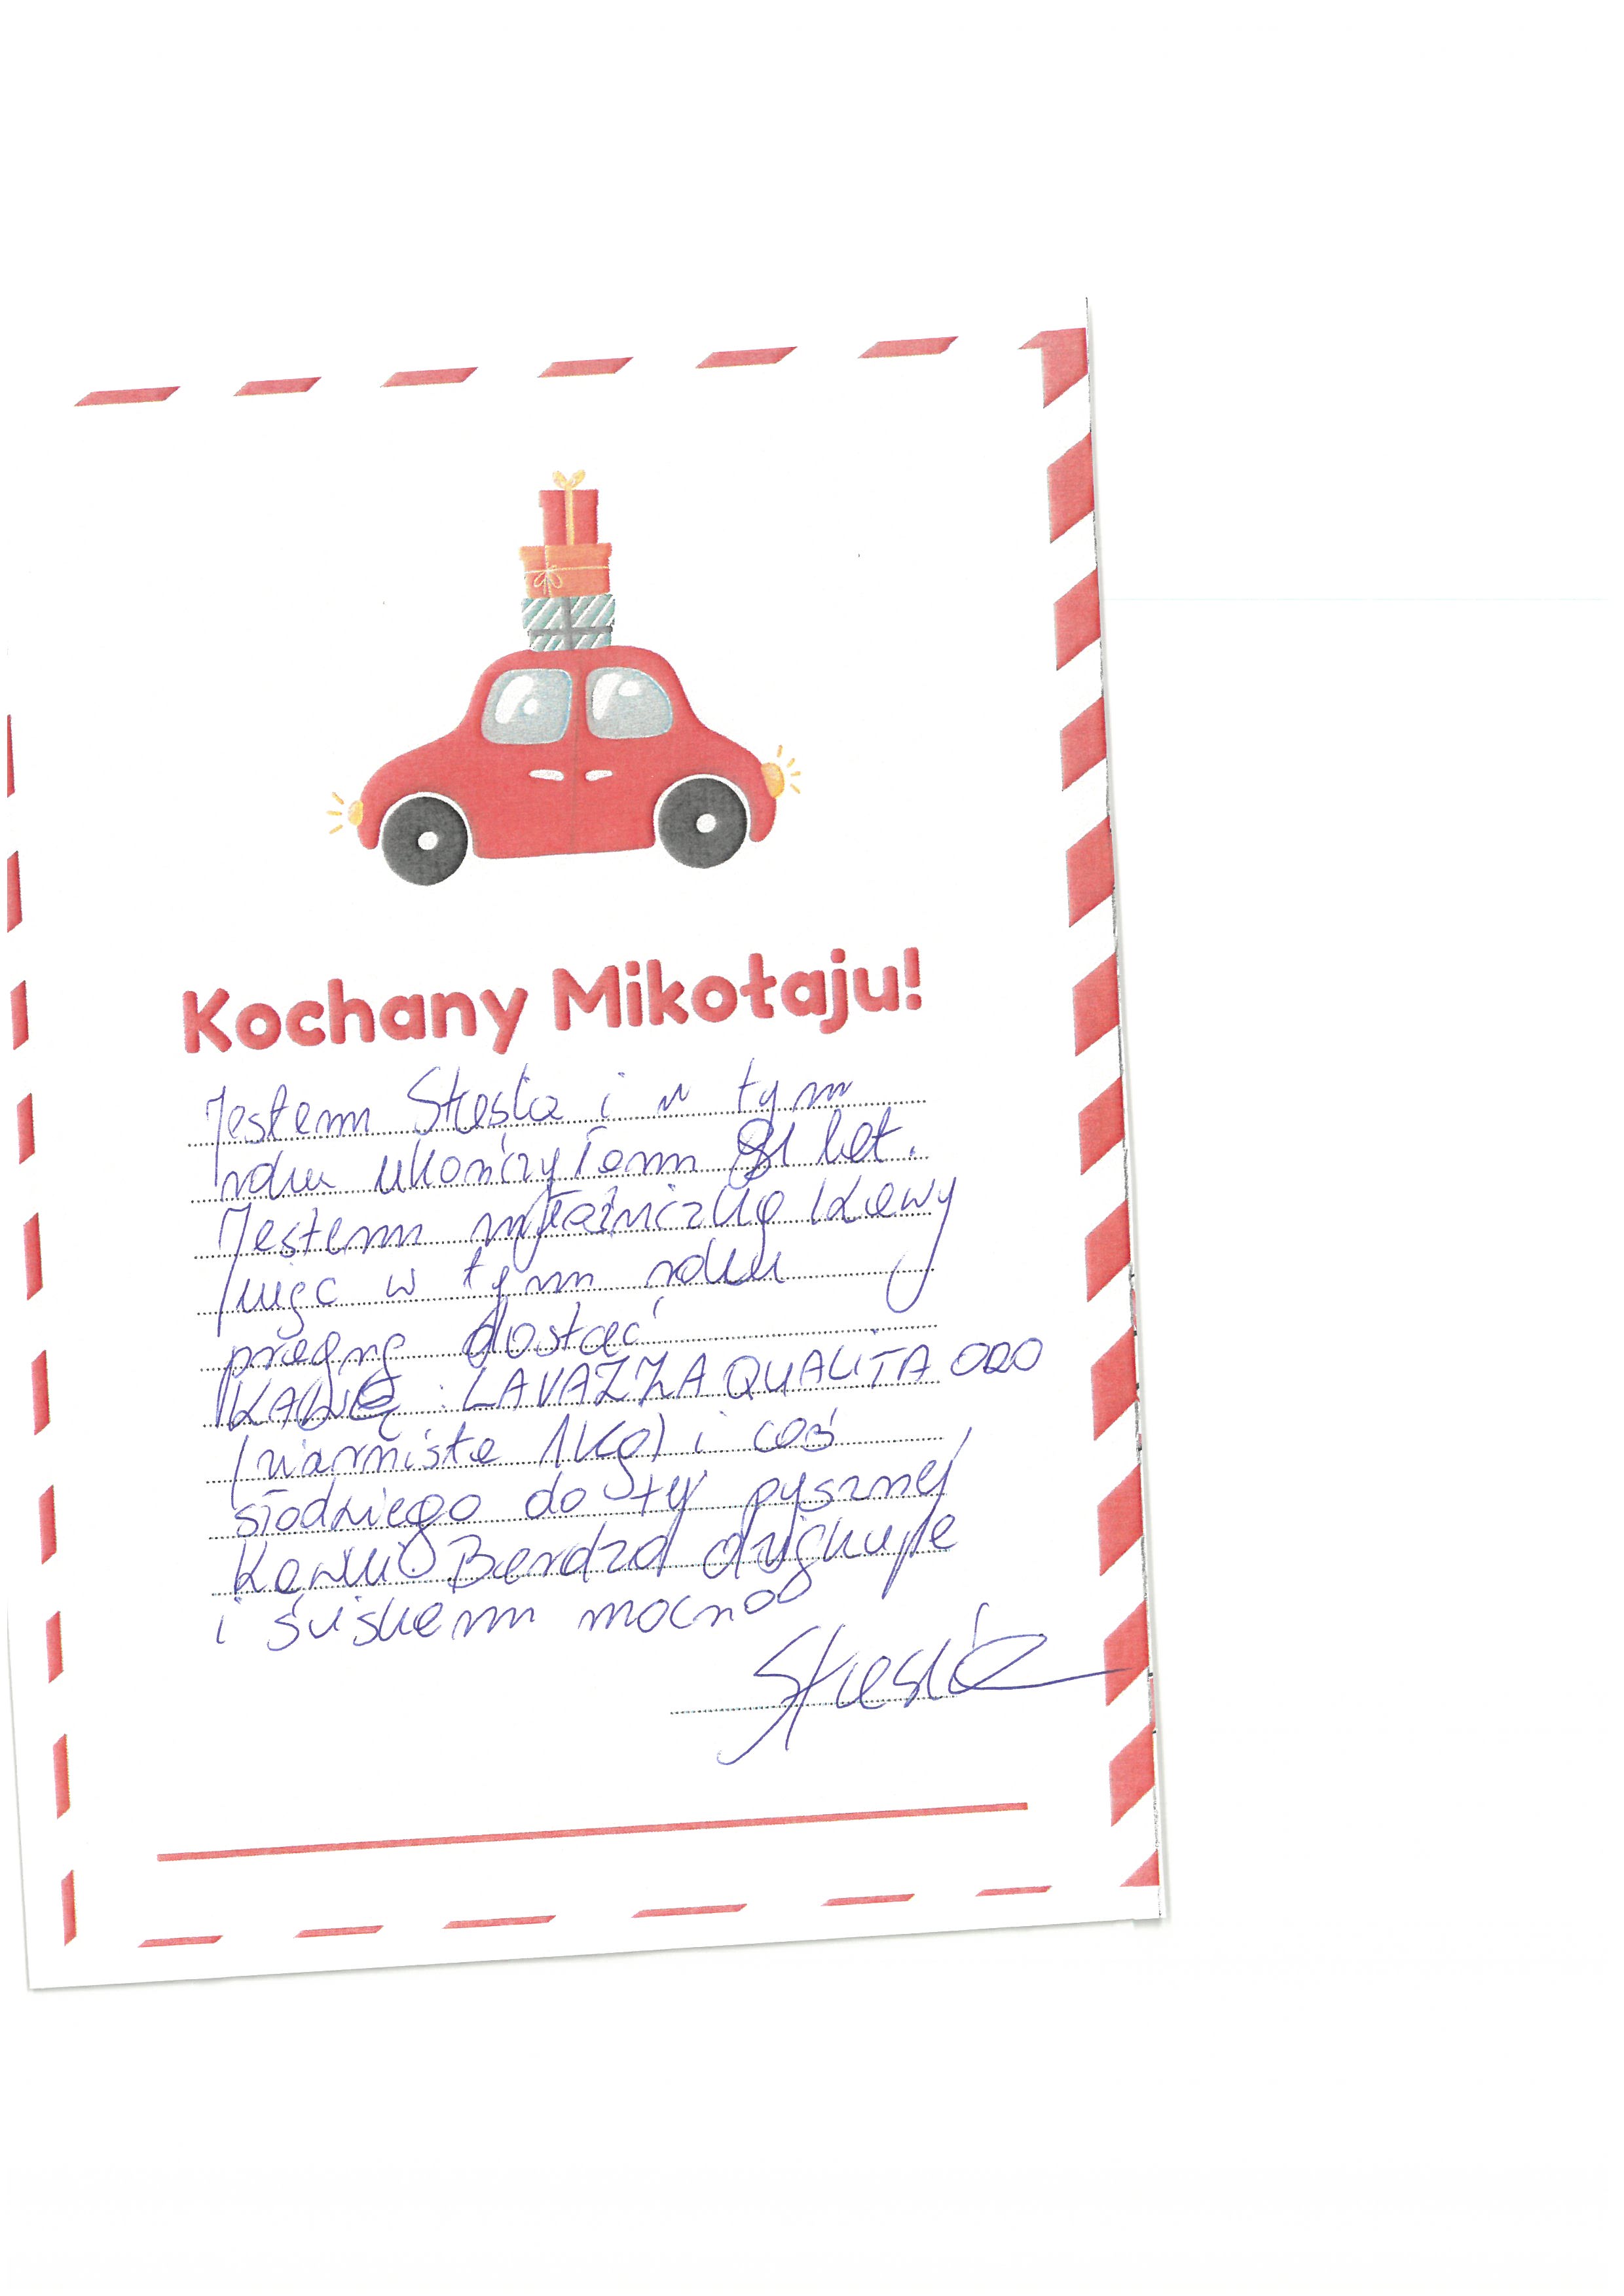 Kochany Mikołaju!
Jestem Stasia i w tym
roku ukończyłam 81 lat.
Jestem miłośniczką kawy
więc w tym roku
pragnę dostać
KAWĘ : LAVAZZA QUALITA ORO
(ziarnista 1kg) i coś
słodziego do tej pysznej
kawki Bardzo dziękuje
i ściskam mocno
Stasia